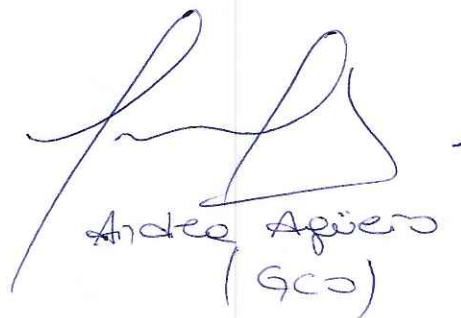 Andrea Agüero
(GCO)